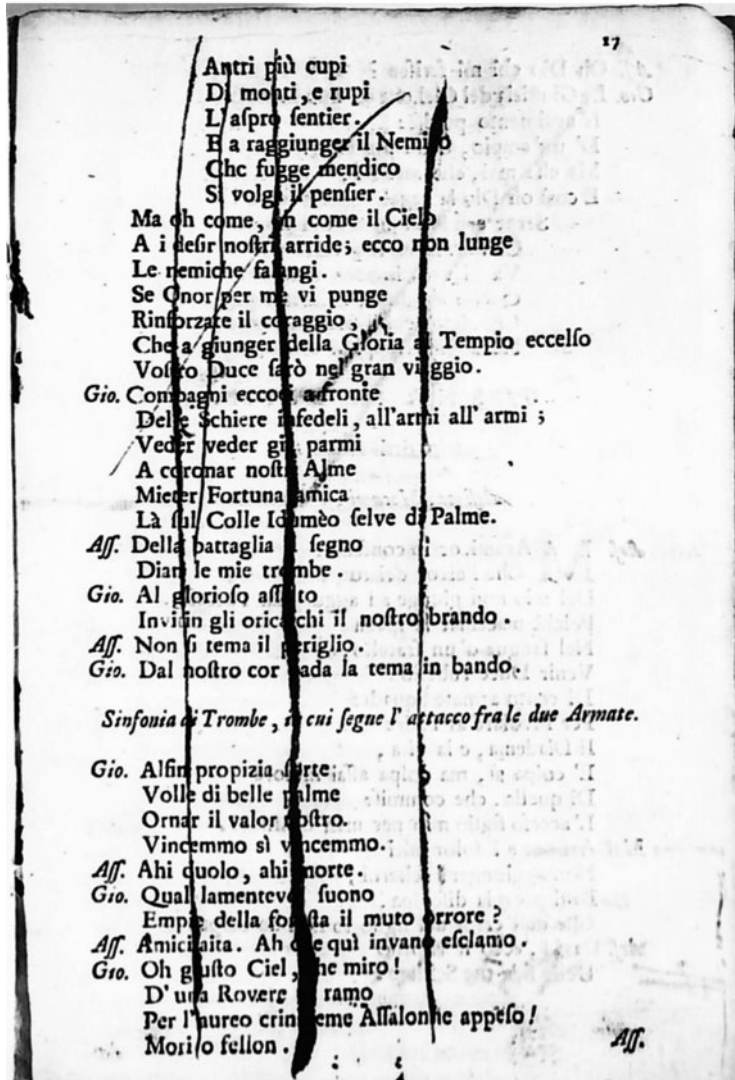 17
Antri più cupi
Di monti, e rupi
L'aſpro ſentier.
E a raggiunger il Nemico
Che fugge mendico
Si volga il penſier.
Ma oh come, oh come il Cielo
A i deſir noſtri arride; ecco non lunge
Le nemiche falangi.
Se Onor per me vi punge
Rinforzate il coraggio,
Che a giunger della Gloria al Tempio eccelſo
Voſtro Duce ſarò nel gran viaggio.
Gio. Compagni eccoci a fronte
Delle Schiere infedeli, all'armi all'armi;
Veder veder già parmi
A coronar noſtr' Alme
Mieter Fortuna amica
Là ſul Colle Idumèo ſelve di Palme.
Aſſ. Della battaglia il ſegno
Dian le mie trombe.
Gio. Al glorioſo aſſalto
Invitin gli oricalchi il noſtro brando.
Aſſ. Non ſi tema il periglio.
Gio. Dal noſtro cor vada la tema in bando.
Sinfonia di Trombe, in cui ſegue l'attacco fra le due Armate.
Gio. Alfin propizia ſorte
Volle di belle palme
Ornar il valor noſtro.
Vincemmo sì vincemmo.
Aſſ. Ahi duolo, ahi morte.
Gio. Qual lamentevol ſuono
Empie della foreſta il muto orrore?
Aſſ. Amici aita. Ah che quì invano eſclamo.
Gio. Oh giuſto Ciel, che miro!
D'una Rovere al ramo
Per l'aureo crin Aſſalonne appeſo!
Mori o fellon.
Aſſ.